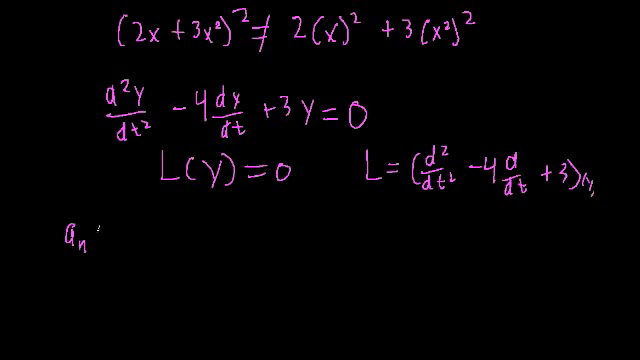 (2x + 3x²)² ≠ 2(x)² + 3(x²)²
d²y/dt² - 4 dy/dt + 3y = 0
L(y) = 0 L = (d²/dt² - 4 d/dt + 3)(y)
aₙ